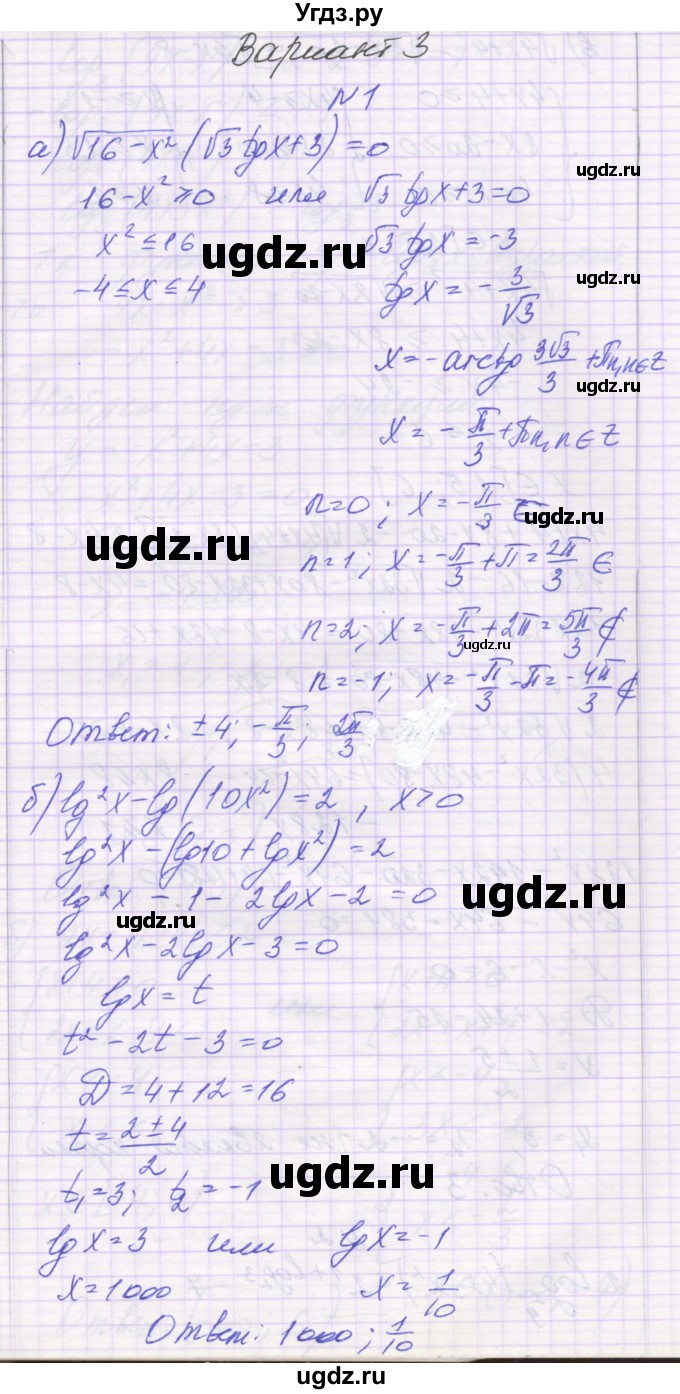 Угдз.ру
Вариант 3
N 1
а) √16 - x² (√3 tgx + 3) = 0
16 - x² ≥ 0 или √3 tgx + 3 = 0
x² ≤ 16 √3 tgx = -3
ugdz.ru
-4 ≤ x ≤ 4 tgx = - 3/√3
ugdz.ru
x = - arctg 3√3/3 + πn, n ∈ Z
ugdz.ru
x = - π/3 + πn, n ∈ Z
n = 0; x = - π/3 ∈
ugdz.ru
ugdz.ru
n = 1; x = - π/3 + π = 2π/3 ∈
n = 2; x = - π/3 + 2π = 5π/3 ∉
ugdz.ru
n = -1; x = - π/3 - π = - 4π/3 ∉
Ответ: ± 4; - π/3; 2π/3
б) lg²x - lg(10x²) = 2, x > 0
lg²x - (lg10 + lgx²) = 2
lg²x - 1 - 2lgx - 2 = 0
ugdz.ru
ugdz.ru
lg²x - 2lgx - 3 = 0
lgx = t
t² - 2t - 3 = 0
D = 4 + 12 = 16
t = 2 ± 4/2
ugdz.ru
t₁ = 3; t₂ = -1
lgx = 3 или lgx = -1
x = 1000 x = 1/10
Ответ: 1000; 1/10
ugdz.ru